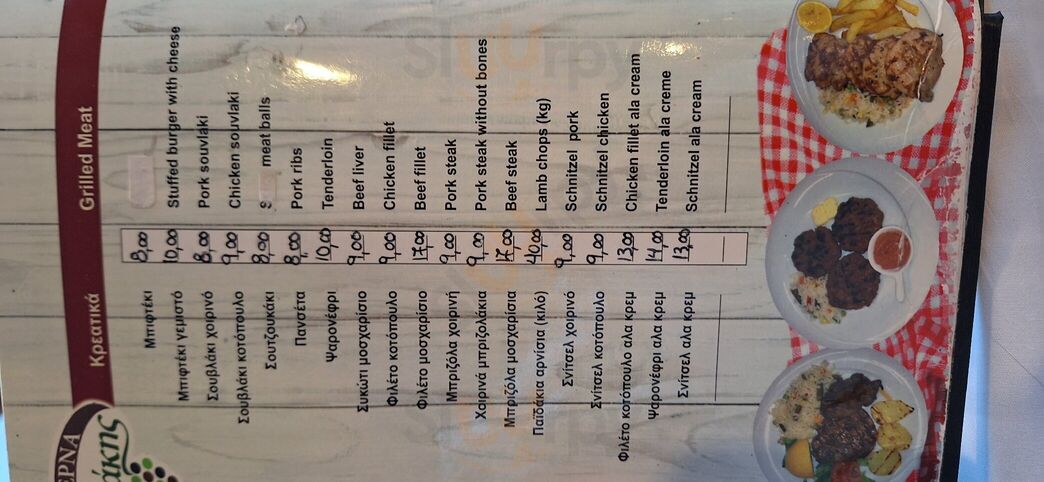 ΕΡΝΑ
άκης
Κρεατικά Grilled Meat
Μπιφτέκι 8,00
Μπιφτέκι γεμιστό 10,00 Stuffed burger with cheese
Σουβλάκι χοιρινό 8,00 Pork souvlaki
Σουβλάκι κοτόπουλο 9,00 Chicken souvlaki
Σουτζουκάκι 8,00 S meat balls
Πανσέτα 8,00 Pork ribs
Ψαρονέφρι 10,00 Tenderloin
Συκώτι μοσχαρίσιο 9,00 Beef liver
Φιλέτο κοτόπουλο 9,00 Chicken fillet
Φιλέτο μοσχαρίσιο 17,00 Beef fillet
Μπριζόλα χοιρινή 9,00 Pork steak
Χοιρινά μπριζολάκια 9,00 Pork steak without bones
Μπριζόλα μοσχαρίσια 17,00 Beef steak
Παϊδάκια αρνίσια (κιλό) 40,00 Lamb chops (kg)
Σνίτσελ χοιρινό 9,00 Schnitzel pork
Σνίτσελ κοτόπουλο 9,00 Schnitzel chicken
Φιλέτο κοτόπουλο αλα κρεμ 13,00 Chicken fillet ala cream
Ψαρονέφρι αλα κρεμ 14,00 Tenderloin ala creme
Σνίτσελ αλα κρεμ 13,00 Schnitzel ala cream
Sluurpy